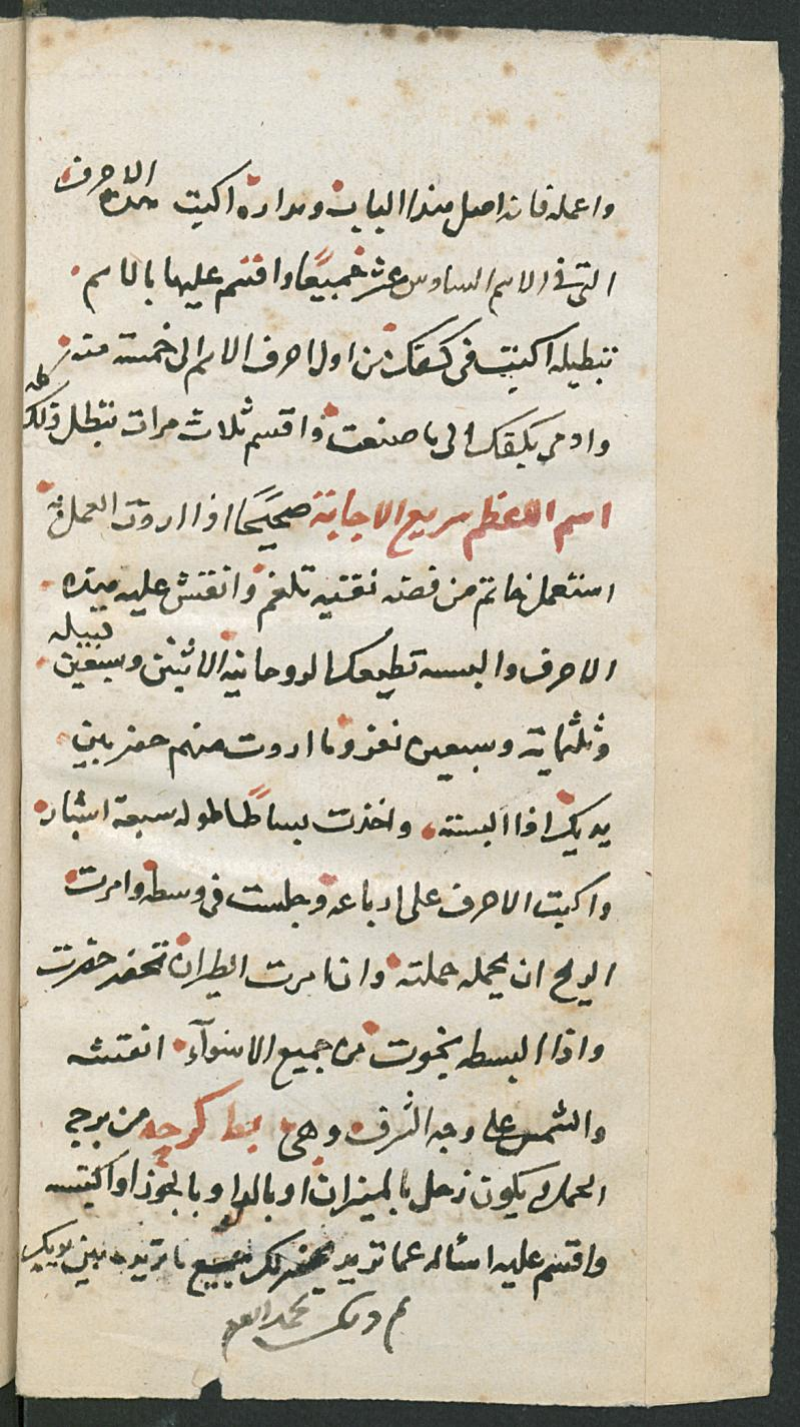 واعمله فانه اصل هذا الباب ومداره اكبت هذه الاحرف
التي في الاسم السادس عشر جميعا واقسم عليها بالاسم
تبطيله اكبت في كفك من اول احرف الاسم الى خمسة منه
وادمي بكفك الى ما صنعت واقسم ثلاث مرات تبطل ذلك كله
اسم الاعظم سريع الاجابة صحيحا اذا اردت العمل به
استعمل خاتم من فضه نقيه وانقش عليه هذه
الاحرف والبسه تطيعك الروحانية الاثنين وسبعين قبيله
وثلثماية وسبعين نفر وما اردت منهم حضر بين
يديك اذا البسته واخذت بساطا طوله سبعة اشبار
واكبت الاحرف على ارباعه وجلست في وسطه وامرت
الريح ان يحمله حملته وان امرت الطيران تحضر حضرت
واذا البسطه نجوت من جميع الاسوآء انقشه
والشمس على وجه الشرف وهي يط كرجه من برج
الحمل ويكون زحل بالميزان او بالدلو وبالجوزا واكتبه
واقسم عليه اساله عما تريد يحضر لك جميع ما تريد بين يديك
تم وذلك